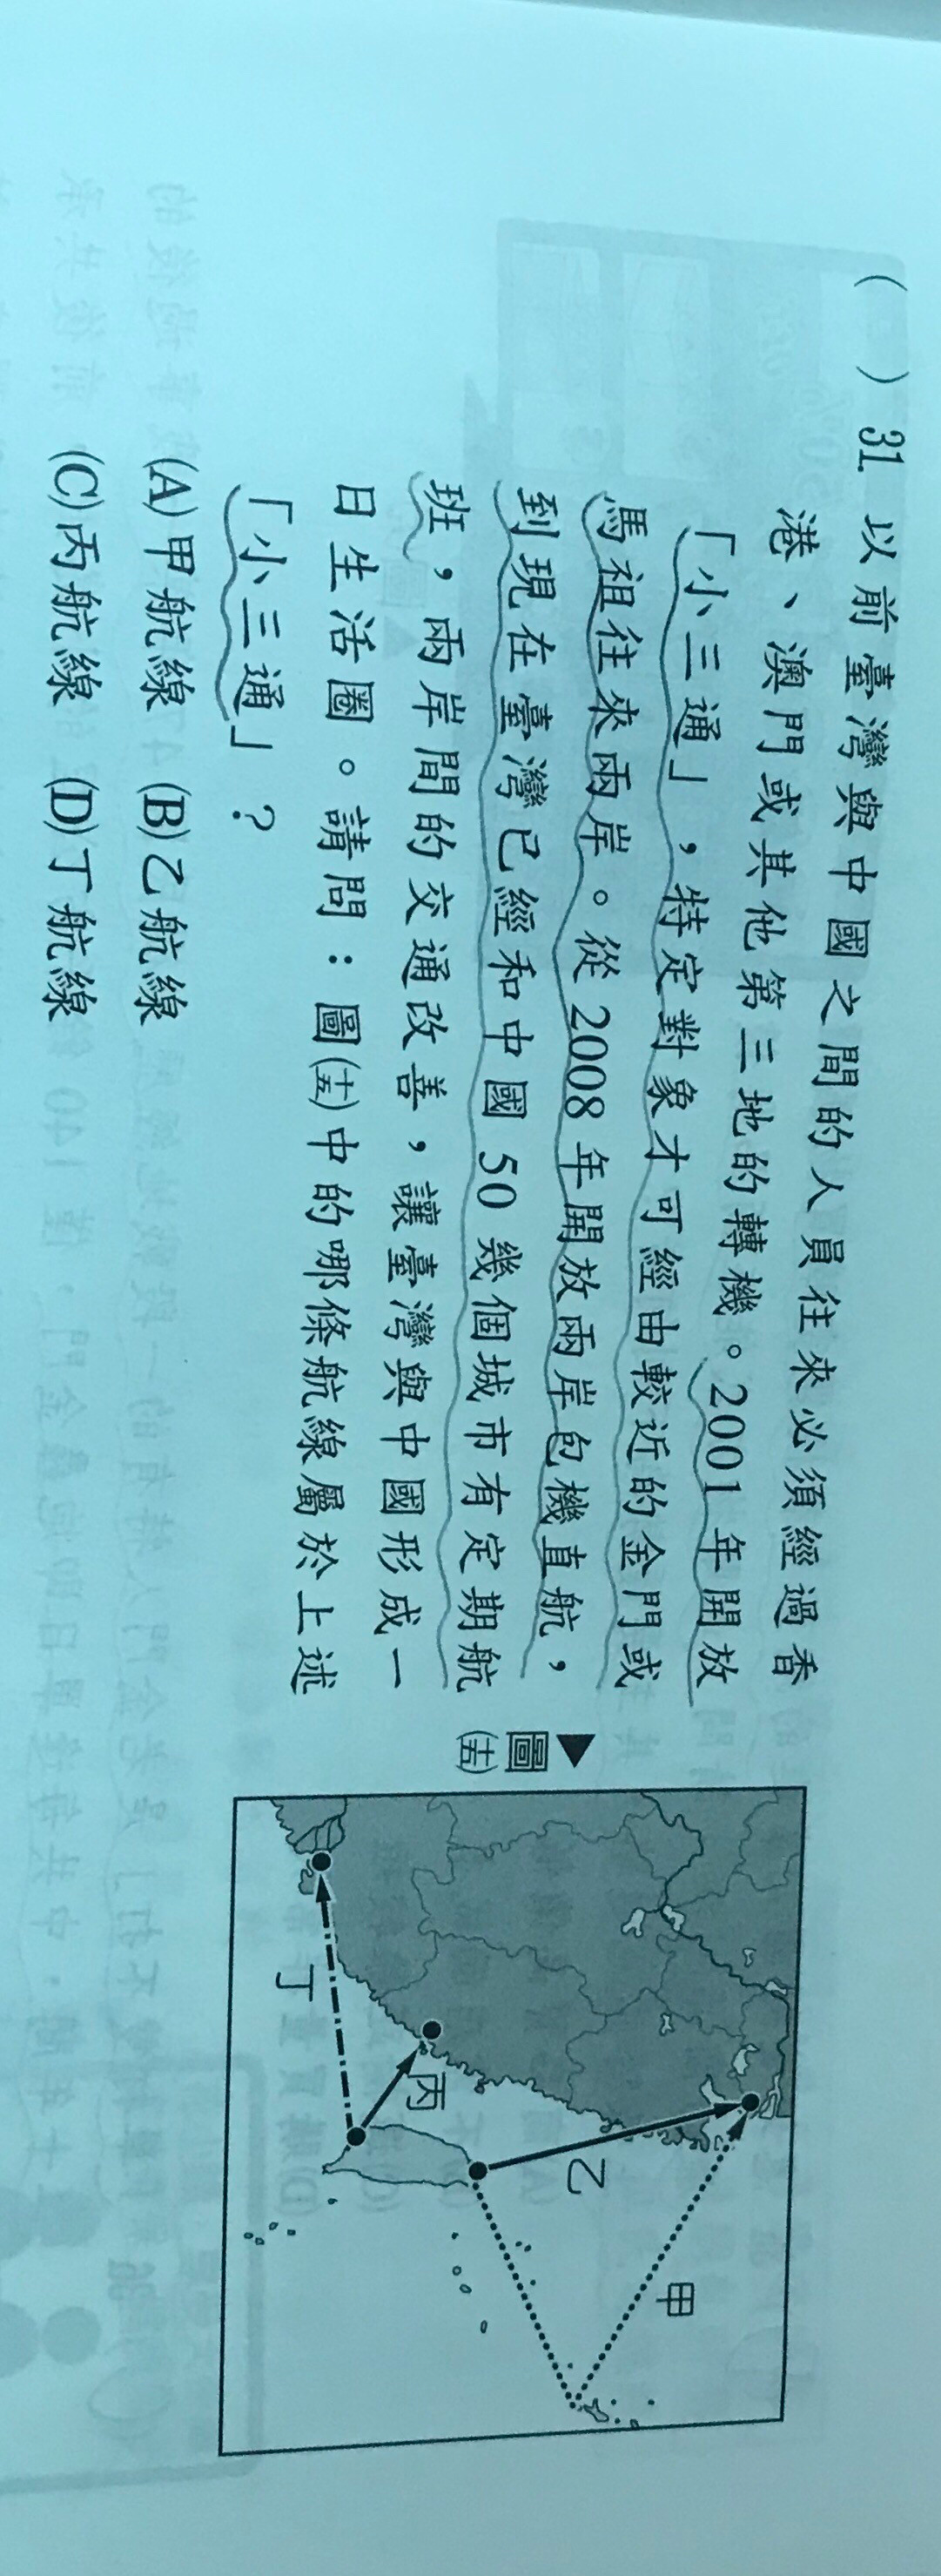 (　) 31. 以前臺灣與中國之間的人員往來必須經過香
港、澳門或其他第三地的轉機。2001 年開放
「小三通」，特定對象才可經由較近的金門或
馬祖往來兩岸。從 2008 年開放兩岸包機直航，
到現在臺灣已經和中國 50 幾個城市有定期航
班，兩岸間的交通改善，讓臺灣與中國形成一
日生活圈。請問：圖(十五)中的哪條航線屬於上述
「小三通」？
(A)甲航線 (B)乙航線
(C)丙航線 (D)丁航線
甲
乙
丙
丁
▲圖(十五)